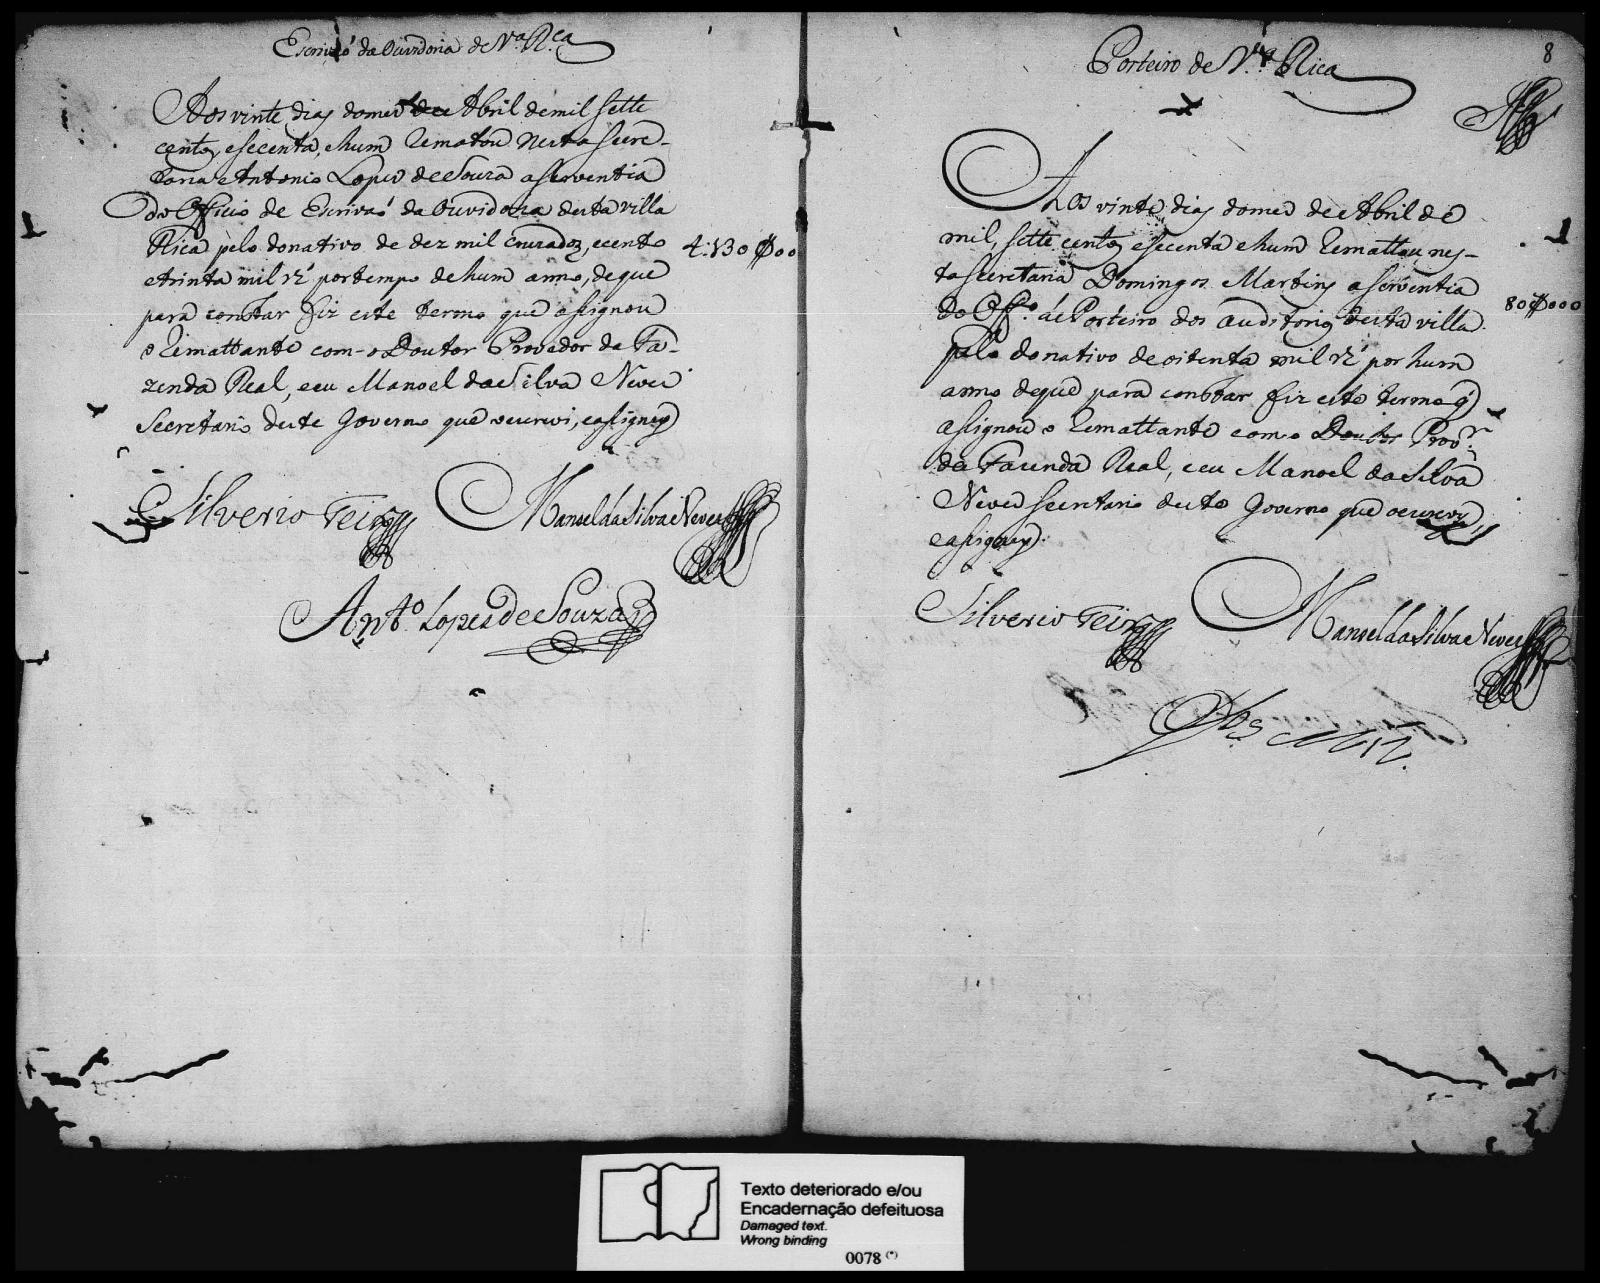 Escrivaõ da Ouvidoria de V.ª R.ca
Aos vinte dias do mes de Abril de mil sette
centos, e secenta, e hum Rematou nesta secre-
taria Antonio Lopes de Souza a serventia
do Officio de Escrivaõ da Ouvidoria desta villa
Rica pelo donativo de dez mil cruzados, e cento
e trinta mil rs por tempo de hum anno, de que
4:130$00
para constar fiz este termo que assignou
o Rematante com o Doutor Provedor da Fa-
zenda Real, e eu Manoel da Silva Neves
Secretario deste Governo que o escrevi, e assigney
Silverio Teixr.ª
Manoel da Silva e Neves
Ant.º Lopes de Souza
8
Porteiro de V.ª Rica
Aos vinte dias do mes de Abril de
mil, sette centos e secenta e hum Remattou nes-
ta secretaria Domingos Martins a serventia
do Off.º de Porteiro dos auditorios desta villa
80$000
pelo donativo de oitenta mil rs por hum
anno de que para constar fiz este termo q
assignou o Remattante com o Doutor Prov.r
da Fazenda Real, e eu Manoel da Silva
Neves secretario deste Governo que o escrevy
e assigney.
Silverio Teixr.ª
Manoel da Silva e Neves
Dos Miz.
Texto deteriorado e/ou
Encadernação defeituosa
Damaged text.
Wrong binding
0078 (*)